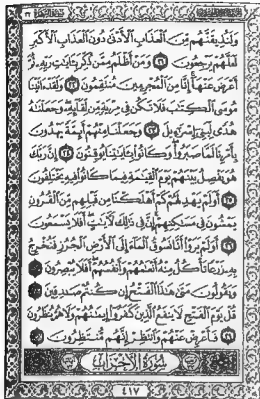 وَلَنُذِيقَنَّهُم مِّنَ ٱلْعَذَابِ ٱلْأَدْنَىٰ دُونَ ٱلْعَذَابِ ٱلْأَكْبَرِ
لَعَلَّهُمْ يَرْجِعُونَ ٢١ وَمَنْ أَظْلَمُ مِمَّن ذُكِّرَ بِـَٔايَٰتِ رَبِّهِۦ ثُمَّ
أَعْرَضَ عَنْهَآ إِنَّا مِنَ ٱلْمُجْرِمِينَ مُنتَقِمُونَ ٢٢ وَلَقَدْ ءَاتَيْنَا
مُوسَى ٱلْكِتَٰبَ فَلَا تَكُن فِى مِرْيَةٍ مِّن لِّقَآئِهِۦ وَجَعَلْنَٰهُ
هُدًى لِّبَنِىٓ إِسْرَٰٓءِيلَ ٢٣ وَجَعَلْنَا مِنْهُمْ أَئِمَّةً يَهْدُونَ
بِأَمْرِنَا لَمَّا صَبَرُوا۟ وَكَانُوا۟ بِـَٔايَٰتِنَا يُوقِنُونَ ٢٤ إِنَّ رَبَّكَ
هُوَ يَفْصِلُ بَيْنَهُمْ يَوْمَ ٱلْقِيَٰمَةِ فِيمَا كَانُوا۟ فِيهِ يَخْتَلِفُونَ
٢٥ أَوَلَمْ يَهْدِ لَهُمْ كَمْ أَهْلَكْنَا مِن قَبْلِهِم مِّنَ ٱلْقُرُونِ
يَمْشُونَ فِى مَسَٰكِنِهِمْ إِنَّ فِى ذَٰلِكَ لَـَٔايَٰتٍ أَفَلَا يَسْمَعُونَ
٢٦ أَوَلَمْ يَرَوْا۟ أَنَّا نَسُوقُ ٱلْمَآءَ إِلَى ٱلْأَرْضِ ٱلْجُرُزِ فَنُخْرِجُ
بِهِۦ زَرْعًا تَأْكُلُ مِنْهُ أَنْعَٰمُهُمْ وَأَنفُسُهُمْ أَفَلَا يُبْصِرُونَ
وَيَقُولُونَ مَتَىٰ هَٰذَا ٱلْفَتْحُ إِن كُنتُمْ صَٰدِقِينَ
قُلْ يَوْمَ ٱلْفَتْحِ لَا يَنفَعُ ٱلَّذِينَ كَفَرُوٓا۟ إِيمَٰنُهُمْ وَلَا هُمْ يُنظَرُونَ
٢٩ فَأَعْرِضْ عَنْهُمْ وَٱنتَظِرْ إِنَّهُم مُّنتَظِرُونَ
سُورَةُ ٱلْأَحْزَابِ
٤١٧